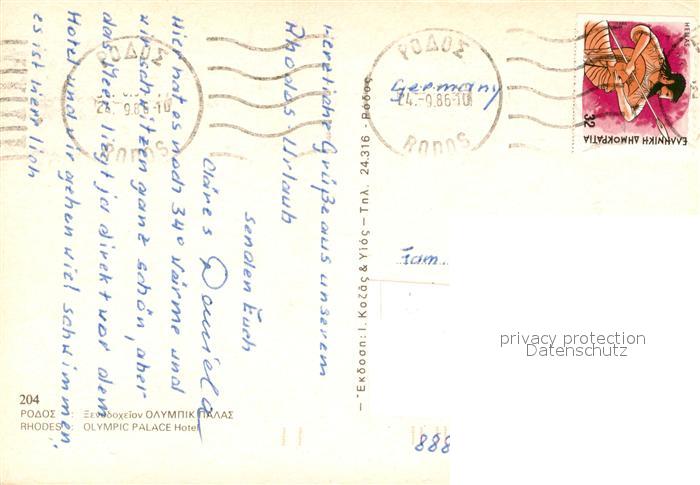 Herzliche Grüße aus unserem
Rhodos-Urlaub
senden Euch
Daniela
Hier hat es noch 34° Wärme und
wir schwitzen ganz schön, aber
das Meer liegt ja direkt vor dem
Hotel und wir gehen viel schwimmen
es ist herrlich
204
ΡΟΔΟΣ : Ξενοδοχεῖον ΟΛΥΜΠΙΚ ΠΑΛΑΣ
RHODES : OLYMPIC PALACE Hotel
— Ἔκδοση: Ι. Κοζᾶς & Υἱός — Τηλ. 24.316 - Ρόδος
ΡΟΔΟΣ
24.-9.86-10
RODOS
ΡΟΔΟΣ
24.-9.86-10
RODOS
Germany
Fam.
ΕΛΛΗΝΙΚΗ ΔΗΜΟΚΡΑΤΙΑ
32
888
privacy protection
Datenschutz